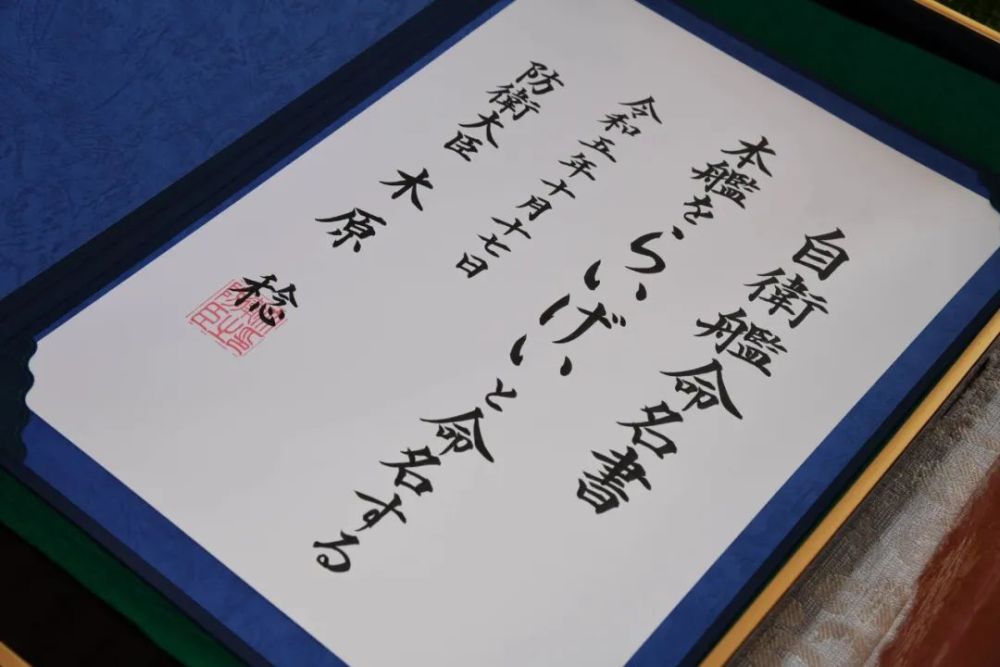 自衛艦命名書
本艦をらいげいと命名する
令和五年十月十七日
防衛大臣 木原 稔